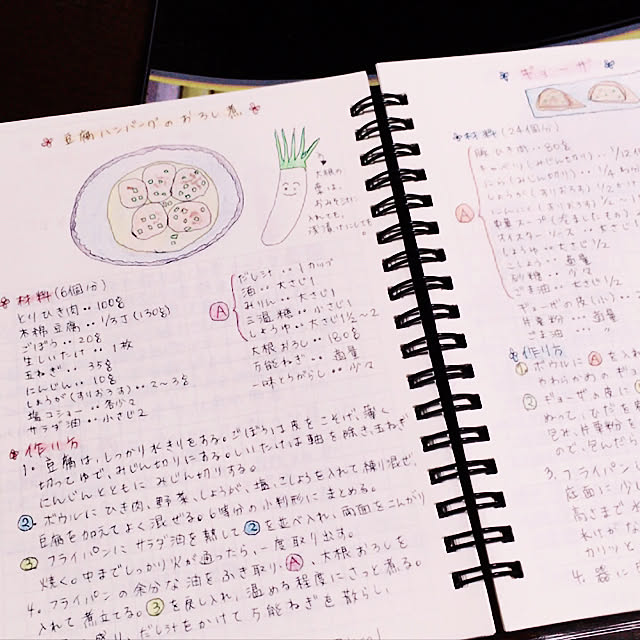 豆腐ハンバーグのおろし煮
大根の
皮は、
おみそ汁に
入れても、
浅漬けにしても。
材料(6個分)
とりひき肉・・100g
木綿豆腐・・1/3丁(130g)
ごぼう・・20g
生しいたけ・・1枚
玉ねぎ・・35g
にんじん・・10g
しょうが(すりおろす)・・2〜3g
塩コショー・・各少々
サラダ油・・小さじ2
A
だし汁・・1カップ
酒・・大さじ1
みりん・・大さじ1
三温糖・・小さじ1
しょうゆ・・大さじ1/2〜2
大根おろし・・180g
万能ねぎ・・適量
一味とうがらし・・少々
作り方
1. 豆腐は、しっかり水きりをする。ごぼうは皮をこそげ、薄く
切ってゆで、みじん切りにする。しいたけは軸を除き、玉ねぎ
にんじんとともにみじん切りする。
2 ボウルにひき肉、野菜、しょうが、塩、こしょうを入れて練り混ぜ、
豆腐を加えてよく混ぜる。6等分の小判形にまとめる。
3 フライパンにサラダ油を熱して2を並べ入れ、両面をこんがり
焼く。中までしっかり火が通ったら、一度取り出す。
4. フライパンの余分な油をふき取り、A、大根おろしを
入れて煮立てる。3を戻し入れ、温める程度にさっと煮る。
盛り、だし汁をかけて万能ねぎを散らし
ギョーザ
材料(24個分)
豚ひき肉・・80g
キャベツ(みじん切り)・・1/12
にら(みじん切り)・・1/4
しょうが(すりおろす)
A
中華スープ(冷ましたもの)
オイスターソース・・大さじ1
しょうゆ・・大さじ1/2
こしょう・・適量
砂糖・・少々
ごま油・・大さじ1/2
ギョーザの皮(小)
片栗粉・・・適量
ごま油・・・〃
作り方
1 ボウルにAを入
やわらかめのギョ
2 ギョーザの皮
ねって、ひだを
包み、片栗粉を
ので、包んだら
3. フライパン
底面に少し
高さまで
水けがな
カリッと
4. 器に